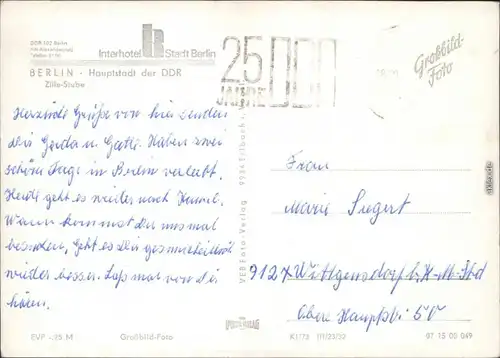 DDR 102 Berlin
Am Alexanderplatz
Interhotel Stadt Berlin
BERLIN - Hauptstadt der DDR
Zille-Stube
25 JAHRE DDR
Großbild-
Foto
Herzliche Grüße von hier senden
dir Gerda u. Gatte. Haben zwei
schöne Tage in Berlin verlebt.
Heute geht es weiter nach
Wann kommst du uns mal
besuchen, geht es dir gesundheitlich
wieder besser. Laß mal von dir
hören.
VEB Foto-Verlag
Frau
Marie Siegert
9127 Wittgensdorf b. K-M-Std
Obere Hauptstr. 50
EVP -,25 M
Großbild-Foto
K1/73 III/23/32
07 15 00 049